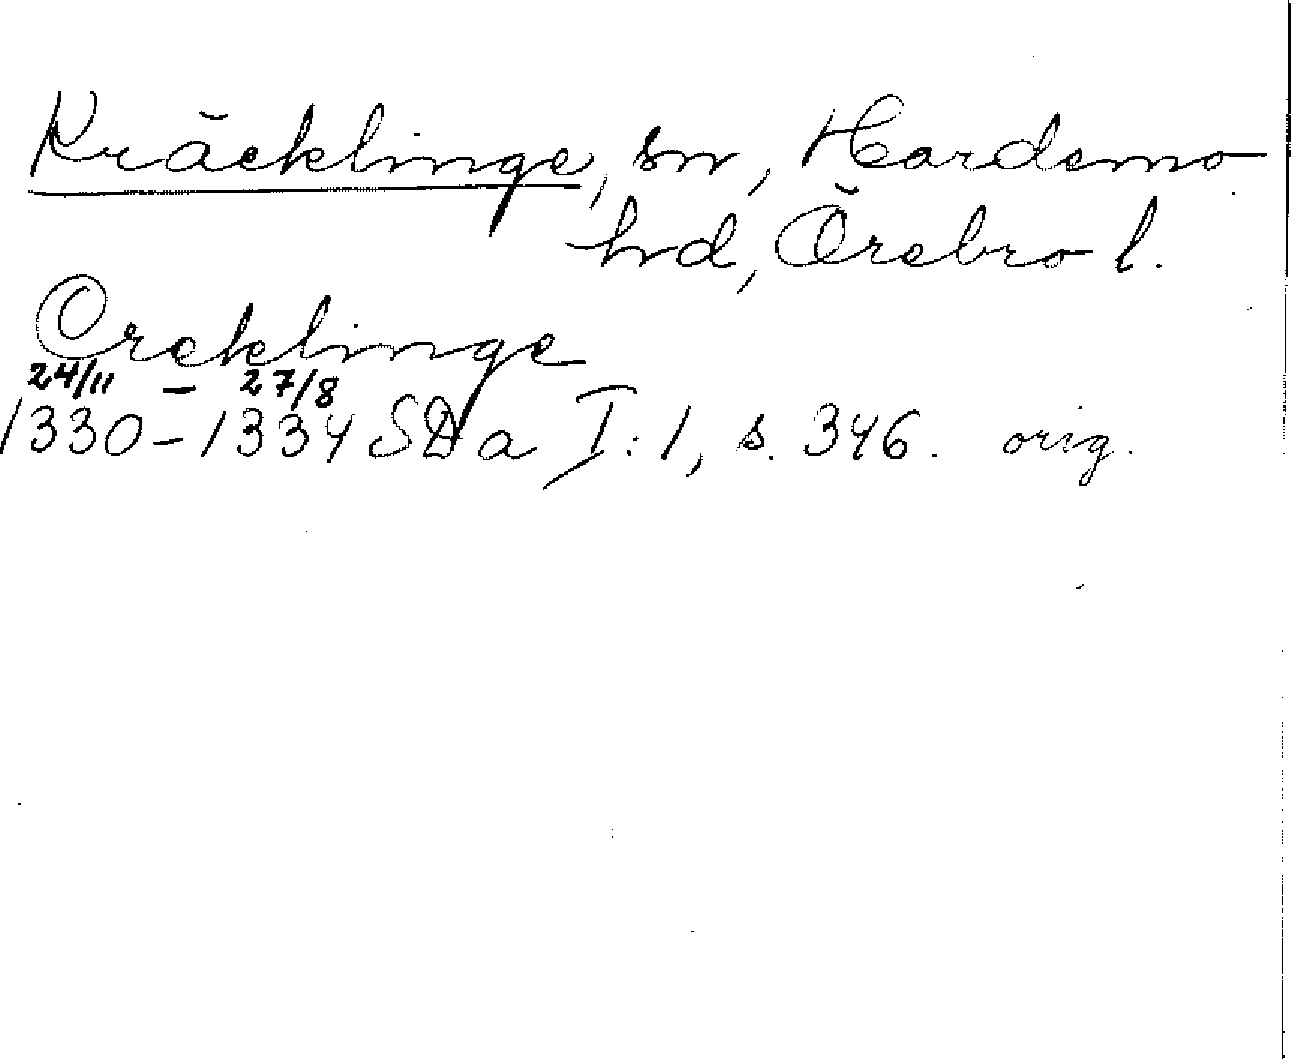 Kräcklinge, sn, Hardemo
hd, Örebro l.
Crcklinge
24/11 – 27/8
1330–1334 SD a I:1, s. 346. orig.